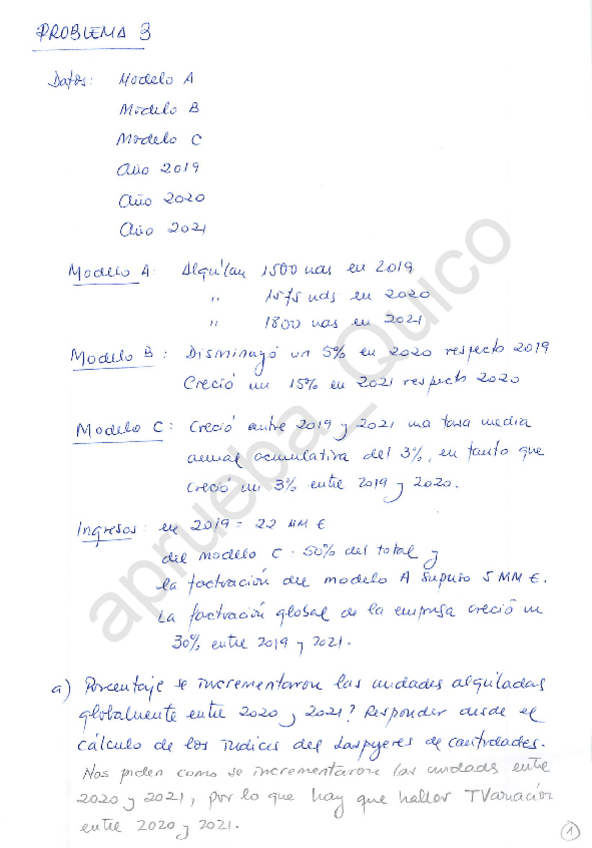 PROBLEMA 3
Datos: Modelo A
Modelo B
Modelo C
Año 2019
Año 2020
Año 2021
Modelo A: Alquilan 1500 uds en 2019
" 1575 uds en 2020
" 1800 uds en 2021
Modelo B: Disminuyó un 5% en 2020 respecto 2019
Creció un 15% en 2021 respecto 2020
Modelo C: Creció entre 2019 y 2021 una tasa media
anual acumulativa del 3%, en tanto que
creció un 3% entre 2019 y 2020.
Ingresos: en 2019 = 22 MM €
del modelo C = 50% del total y
la facturación del modelo A supuso 5 MM €.
La facturación global de la empresa creció un
30% entre 2019 y 2021.
a) Porcentaje se incrementaron las unidades alquiladas
globalmente entre 2020 y 2021? Responder desde el
cálculo de los índices de Laspyeres de cantidades.
Nos piden como se incrementaron las unidads entre
2020 y 2021, por lo que hay que hallar TVariación
entre 2020 y 2021.
1
aprueba_Quico